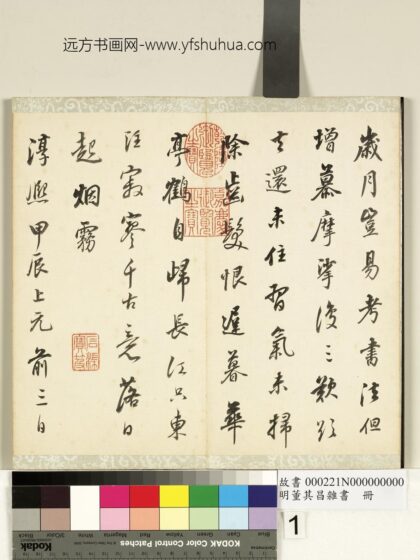 远方书画网-www.yfshuhua.com
歲月豈易考書法但
增慕摩挲復三歎欲
去還未住習氣未掃
除齒髮恨遲暮華
亭鶴自歸長江只東
注寂寥千古意落日
起烟霧
淳熙甲辰上元前三日
故書 000221N000000000
明董其昌雜書 冊
1
KODAK Color Control Patches
Blue Cyan Green Yellow Red Magenta White 3/Color Black